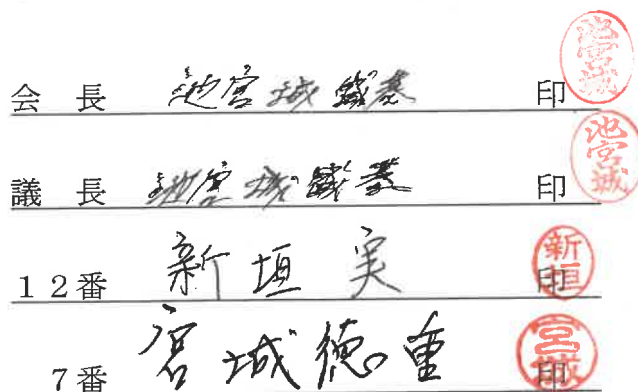 会長 池宮城 印 池宮城
議長 池宮城 印 池宮城
12番 新垣実 印 新垣
7番 宮城徳重 印 宮城